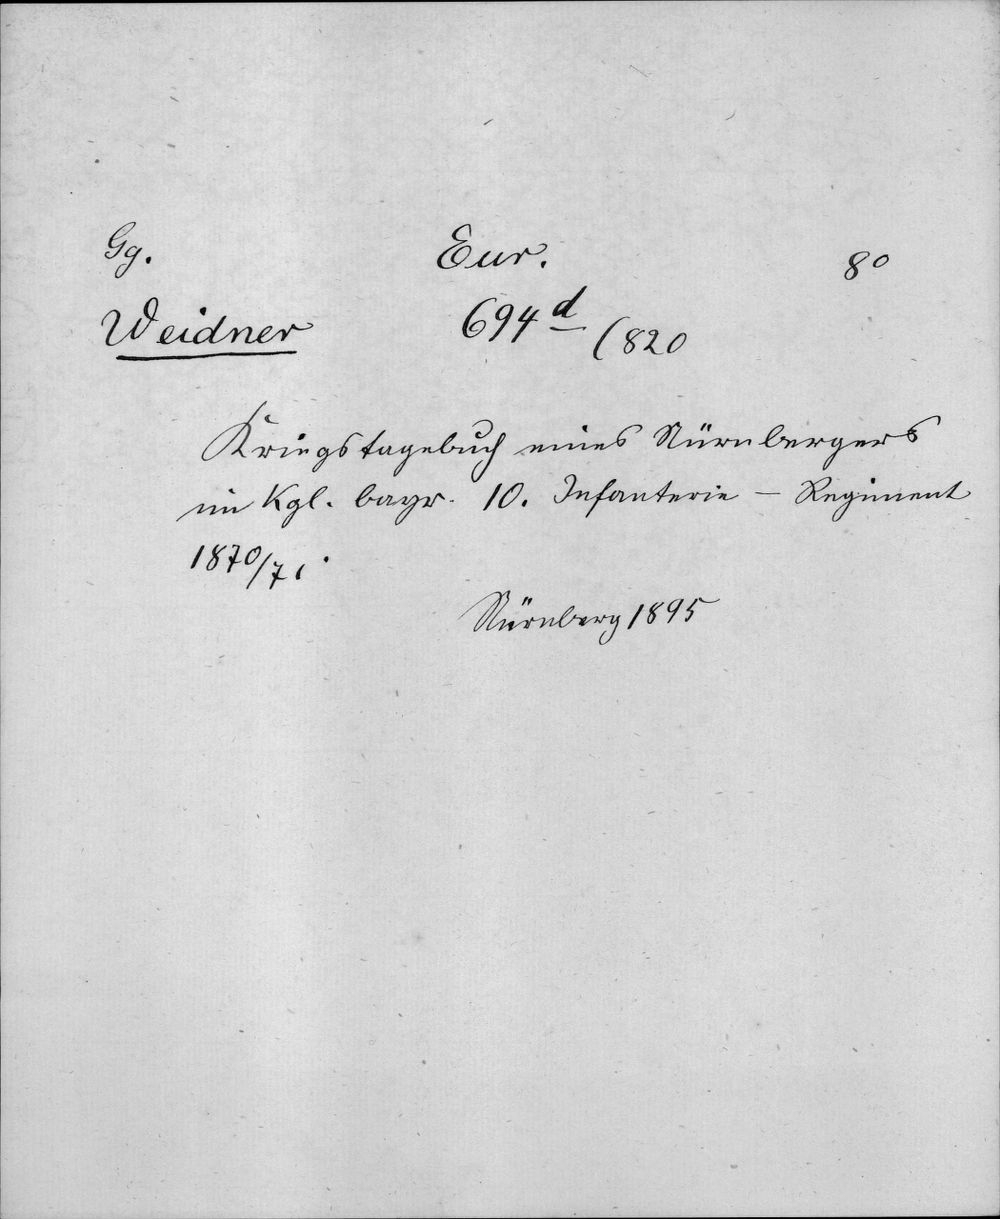 Gg. Eur. 8°
Weidner 694d (820
Kriegstagebuch eines Nürnbergers
im Kgl. bayr. 10. Infanterie - Regiment
1870/71.
Nürnberg 1895